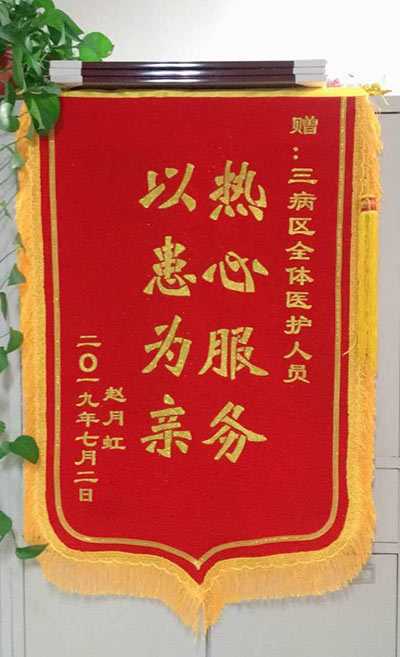 赠：三病区全体医护人员
热心服务
以患为亲
赵月虹
二〇一九年七月二日